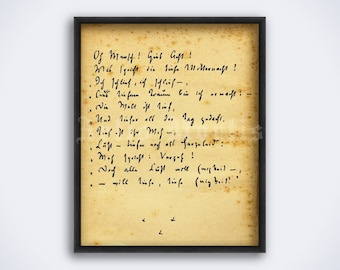 Oh Mensch! Gieb Acht!
Was spricht die tiefe Mitternacht?
Ich schlief, ich schlief –,
Aus tiefem Traum bin ich erwacht: –
Die Welt ist tief,
Und tiefer als der Tag gedacht.
Tief ist ihr Weh –
Lust – tiefer noch als Herzeleid:
Weh spricht: Vergeh!
Doch alle Lust will Ewigkeit –,
– will tiefe, tiefe Ewigkeit!